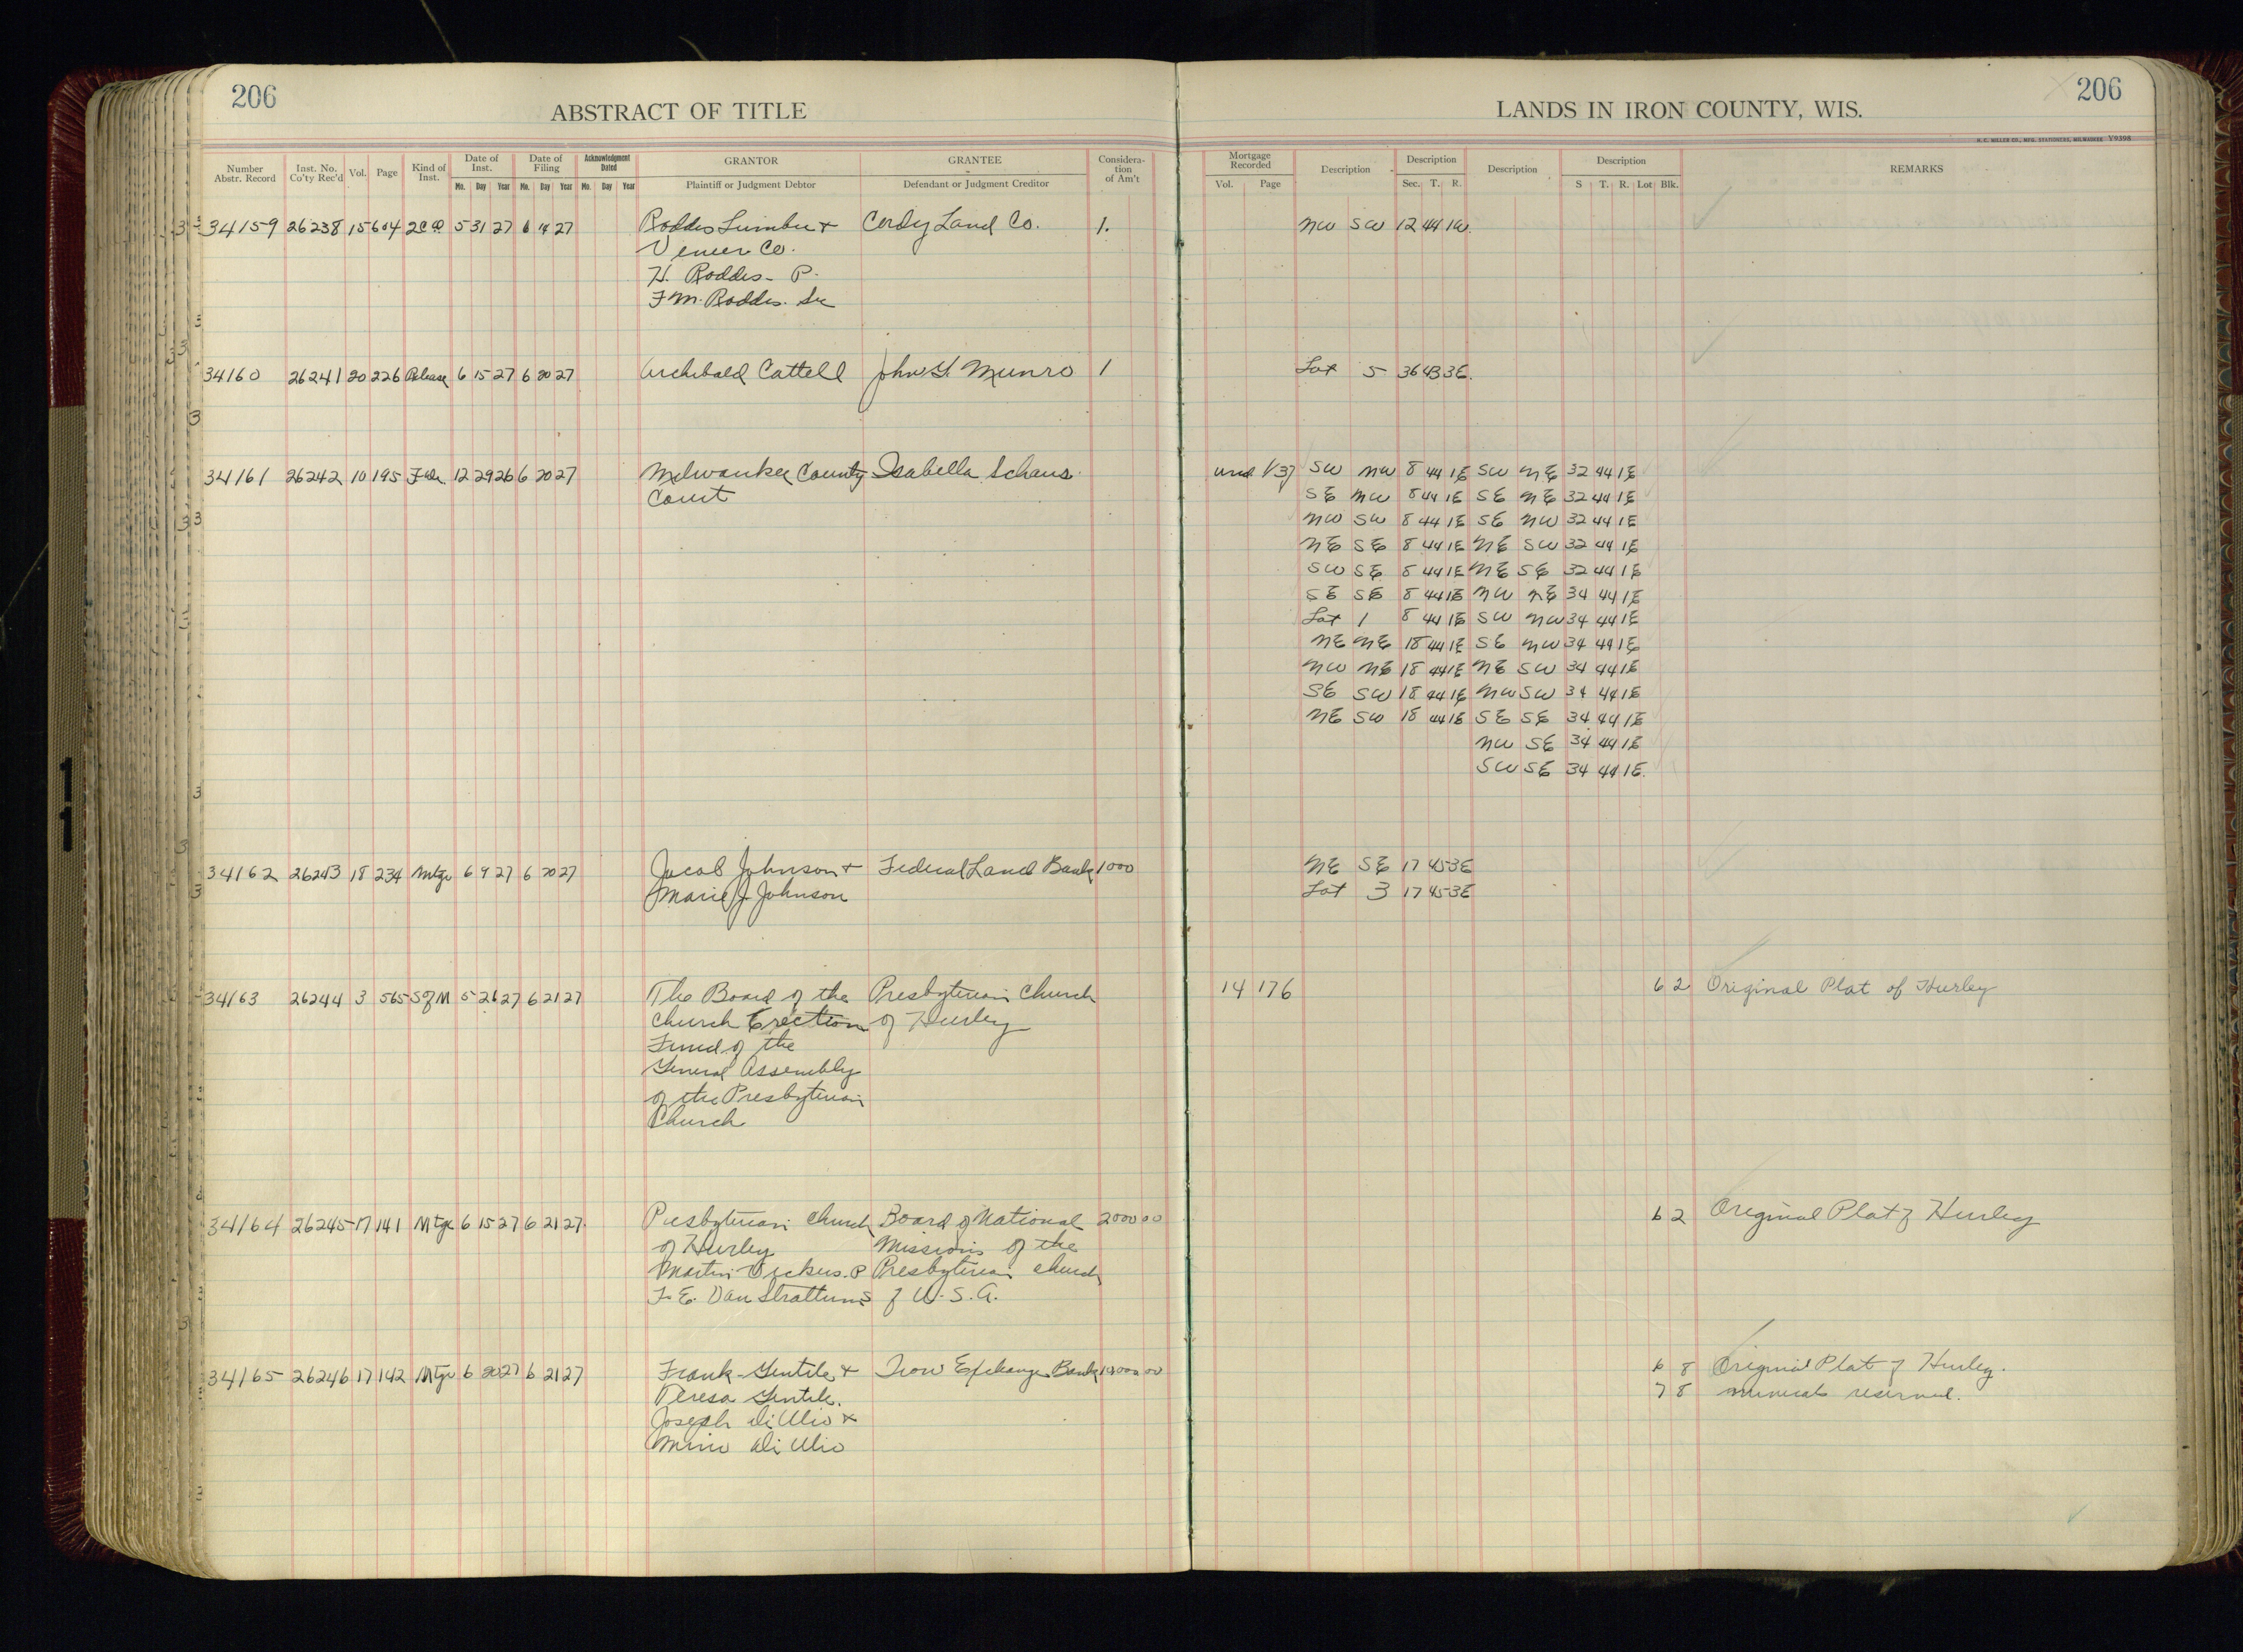 206
ABSTRACT OF TITLE
LANDS IN IRON COUNTY, WIS.
206
H. C. MILLER CO., MFG. STATIONERS, MILWAUKEE V9398
Number Abstr. Record | Inst. No. Co'ty Rec'd | Vol. | Page | Kind of Inst. | Date of Inst. Mo. Day Year | Date of Filing Mo. Day Year | Acknowledgment Dated Mo. Day Year | GRANTOR Plaintiff or Judgment Debtor | GRANTEE Defendant or Judgment Creditor | Considera-tion of Am't | Mortgage Recorded Vol. Page | Description | Description Sec. T. R. | Description | Description S T. R. Lot Blk. | REMARKS
34159 26238 15 604 2CD 5 31 27 6 14 27 Roddis Lumber + Cordy Land Co. 1. NW SW 12 44 1W.
Veneer Co.
H. Roddis - P.
F M. Roddis. Sec
34160 26241 20 226 Release 6 15 27 6 20 27 Archibald Cattell John G. Munro 1 Lot 5 36 43 3E.
34161 26242 10 195 12 29 26 6 20 27 Milwaukee County Isabella Schaus. und 1/37 SW NW 8 44 1E SW NE 32 44 1E
Court SE NW 8 44 1E SE NE 32 44 1E
NW SW 8 44 1E SE NW 32 44 1E
NE SE 8 44 1E NE SW 32 44 1E
SW SE 8 44 1E NE SE 32 44 1E
SE SE 8 44 1E NW NE 34 44 1E
Lot 1 8 44 1E SW NW 34 44 1E
NE NE 18 44 1E SE NW 34 44 1E
NW NE 18 44 1E NE SW 34 44 1E
SE SW 18 44 1E NW SW 34 44 1E
NE SW 18 44 1E SE SE 34 44 1E
NW SE 34 44 1E
SW SE 34 44 1E.
34162 26243 18 234 Mtge 6 9 27 6 20 27 Jacob Johnson + Federal Land Bank 1000 NE SE 17 45 3E
Marie J. Johnson Lot 3 17 45 3E
34163 26244 3 565 S of M 5 26 27 6 21 27 The Board of the Presbyterian Church 14 176 6 2 Original Plat of Hurley
Church Erection of Hurley
Fund of the
General Assembly
of the Presbyterian
Church
34164 26245 17 141 Mtge 6 15 27 6 21 27. Presbyterian Church Board of National 2000 00 6 2 Original Plat of Hurley
of Hurley Missions of the
Martin Vickers. P Presbyterian church
F. E. Van Strattum S of U. S. A.
34165 26246 17 142 Mtge 6 20 27 6 21 27 Frank Gentile + Iron Exchange Bank 6 8 Original Plat of Hurley.
Teresa Gentile. 7 8 minerals reserved.
Joseph Di Ulio +
Di Ulio